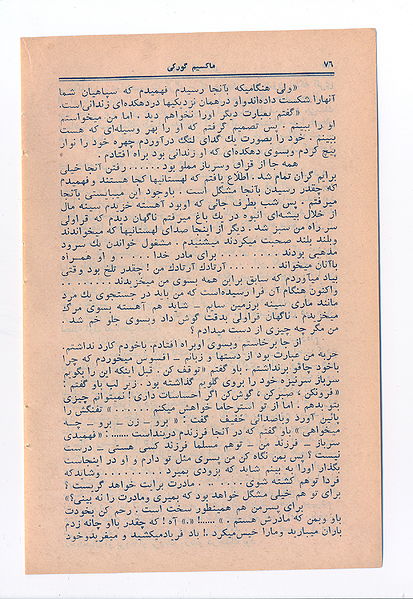 ۷۶
ماکسیم گورکی
«ولی هنگامیکه بآنجا رسیدم فهمیدم که سپاهیان شما
آنهارا شکست داده‌اندواو درهمان نزدیکیها دردهکده‌ای زندانی‌است.
«گفتم بعبارت دیگر اورا نخواهم دید . اما من میخواستم
او را ببینم . پس تصمیم گرفتم که او را بهر وسیله‌ای که هست
ببینم . خود را بصورت یك گدای لنگ درآوردم چهره خود را نوار
پیچ کردم وبسوی دهکده‌ای که او زندانی بود براه افتادم .
همه جا از قزاق وسرباز مملو بود . . . . . رفتن آنجا خیلی
برایم گران تمام شد . اطلاع یافتم که لهستانیها کجا هستند وفهمیدم
که چقدر رسیدن بآنجا مشکل است . باوجود این میبایستی بآنجا
میرفتم . پس شب بطرف جائی که اوبود آهسته خزیدم سینه مال
از خلال بیشه‌ای انبوه در یك باغ میرفتم ناگهان دیدم که قراولی
سر راه من سبز شد . دیگر از اینجا صدای لهستانیها که میخواندند
وبلند بلند صحبت میکردند میشنیدم . مشغول خواندن یك سرود
مذهبی بودند . . . . . . . . . برای مادر خدا . . . . و او همراه
باآنان میخواند . . . . . . . آرتادك آرتادك من ! چقدر تلخ بود وقتی
بیاد میآوردم که سابق براین همه بسوی من میخزیدند . . . . . .
واکنون هنگام آن فرا رسیده‌است که من باید در جستجوی یك مرد
مانند ماری سینه برزمین سایم ــ شاید هم آهسته بسوی مرگ
میخزیدم . ناگهان قراولی بدقت گوش داد وبسوی جلو خم شد .
من مگر چه چیزی از دست میدادم ؟
از جا برخاستم وبسوی اوبراه افتادم. باخودم کارد نداشتم.
حربه من عبارت بود از دستها و زبانم ــ افسوس میخوردم که چرا
باخود چاقو برنداشتم . باو گفتم «توقف کن . قبل اینکه این را بگویم
سرباز سرنیزه خود را بروی گلویم گذاشته بود . زیر لب باو گفتم :
«فرونکن ، صبرکن ، گوش‌کن اگر احساسات داری ! نمیتوانم چیزی
بتو بدهم . اما از تو استرحاما خواهش میکنم . . . . . . » تفنگش را
پائین آورد وباصدائی خفیف گفت : «برو ــ زن ــ برو ــ چه
میخواهی » باو گفتم که در آنجا فرزندم دربنداست . . . . . . : «فهمیدی
سرباز ــ فرزند من ــ توهم مسلما فرزند کسی هستی ــ درست
نیست ؟ پس بمن نگاه کن من پسری مثل تو دارم و او در اینجاست
بگذار اورا به بینم شاید که بزودی بمیرد . . . . . . . . وشایدکه
فردا توهم کشته شوی . . . . . . . مادرت برایت خواهد گریست ؟
برای تو هم خیلی مشکل خواهد بود که بمیری ومادرت را نه بینی؟»
برای پسرمن هم همینطور سخت است . رحم کن بخودت
باو وبمن که مادرش هستم .» . . . . . ! «.» آه ! که چقدر بااو چانه زدم
باران میبارید ومارا خیس‌میکرد .! باد فریادمیکشید و میغریدوخود